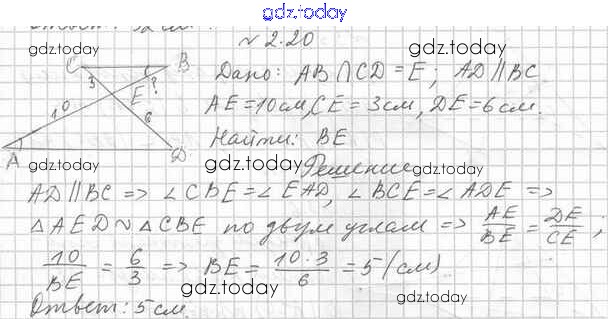 gdz.today
Ответ: 52 см.
gdz.today
№ 2.20
gdz.today
C B
3 E ?
10 6
A D
Дано: AB ∩ CD = E; AD ∥ BC
AE = 10 см, CE = 3 см, DE = 6 см.
Найти: BE
gdz.today
gdz.today
Решение
AD ∥ BC => ∠ CBE = ∠ EAD, ∠ BCE = ∠ ADE =>
△ AED ~ △ CBE по двум углам => AE/BE = DE/CE;
10/BE = 6/3 => BE = 10·3/6 = 5 (см)
gdz.today
gdz.today
Ответ: 5 см.